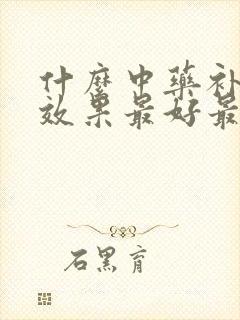 什麼中藥补
效果最好最
石黑育